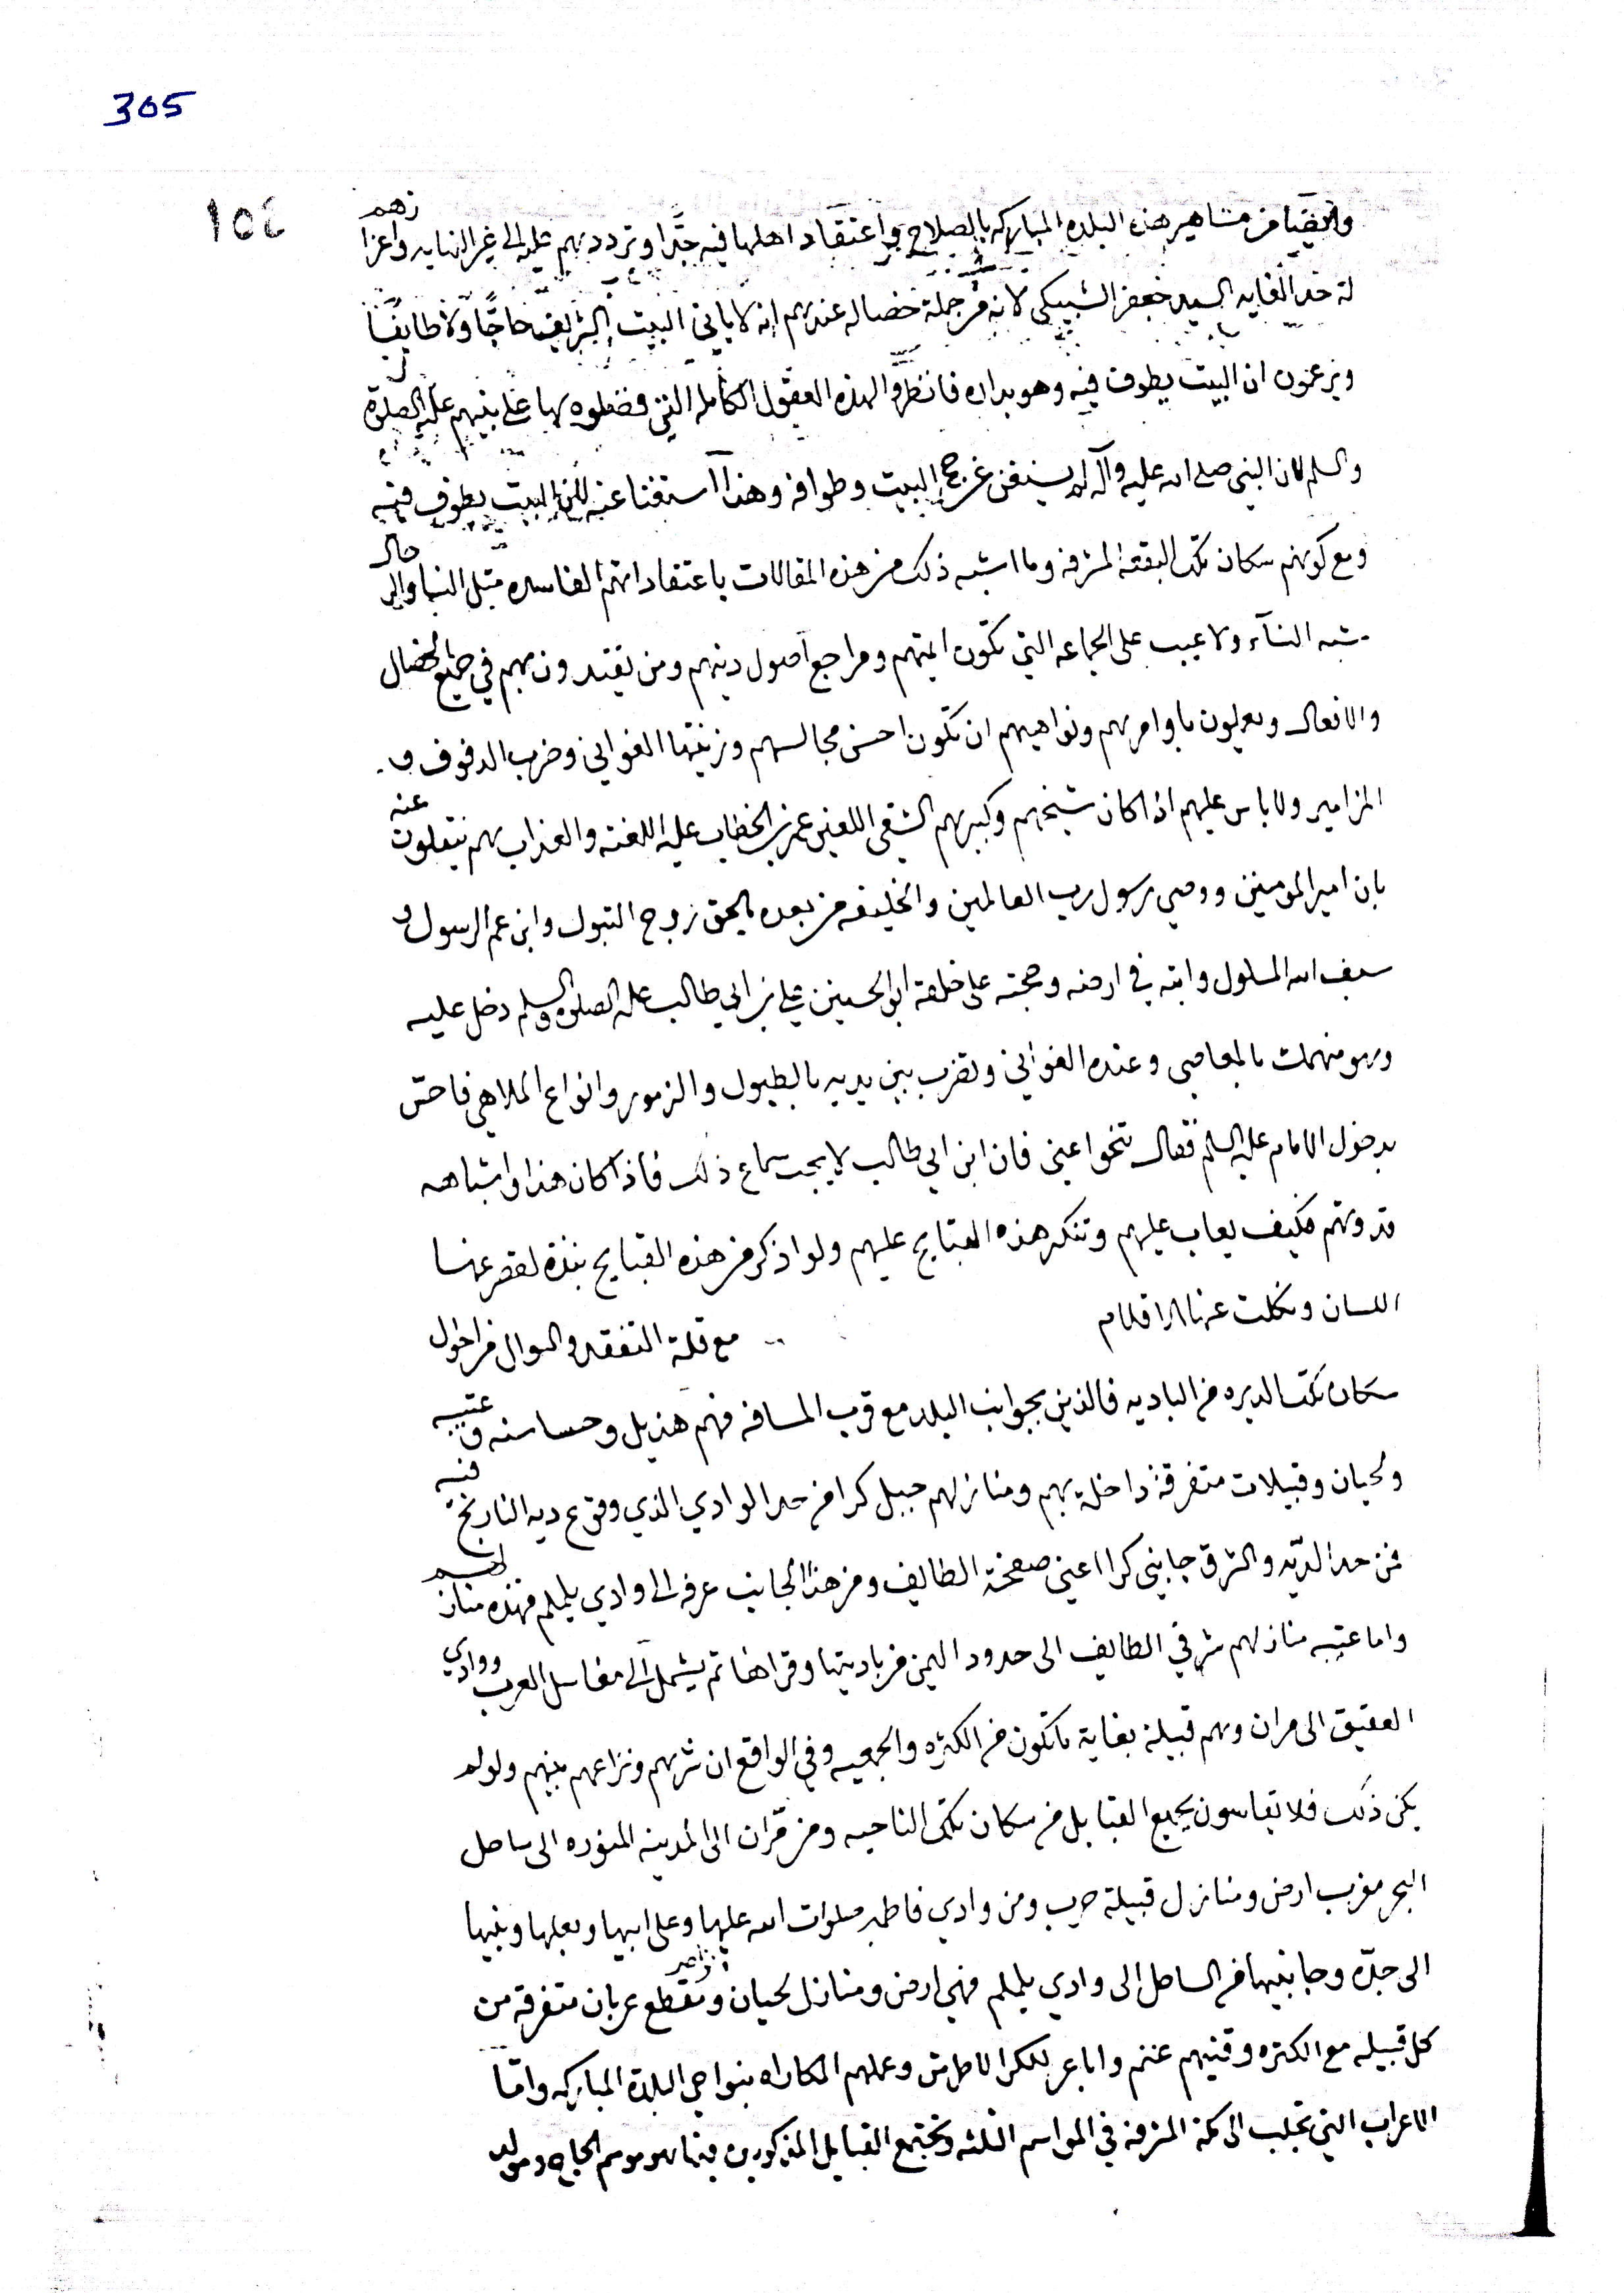 305
١٥٤
وايضا من مشاهير هذه البلده المباركه بالصلاح واعتقاد اهلها فيه جدًا وترددهم عليه الى غير النهايه واعزازهم
له حد الغايه السيد جعفر الشبيكي لانه من جملة خصاله عندهم انه لا ياتي البيت الشريف حاجًا ولا طايفًا
ويزعمون ان البيت يطوف فيه وهو بداره فانظروا لهذه العقول الكامله التي فضلوه بها على نبيهم عليه الصلوة
والسلم لان النبي صلى الله عليه وآله لم يستغن عن حج البيت وطوافه وهذا استغنا عنه لان البيت يطوف فيه
ومع كونهم سكان تلك البقعه المشرفه وما اشبه ذلك من هذه المقالات باعتقاداتهم الفاسده مثل النسا والرجال
شبه النسآء ولا عيب على الجماعه التي تكون ايمتهم ومراجع اصول دينهم ومن يقتدون بهم في جميع الخصال
والافعال ويعملون باوامرهم ونواهيهم ان تكون احسن مجالسهم وزينتها الغواني وضرب الدفوف و
المزامير ولا باس عليهم اذا كان شيخهم وكبيرهم الشقي اللعين عمر بن الخطاب عليه اللعنه والعذاب هم ينقلون عنه
بان امير المومنين ووصي رسول رب العالمين والخليفه من بعده بالحق زوج البتول وابن عم الرسول و
سيف الله المسلول وايته في ارضه وحجته على خلقه ابو الحسنين علي بن ابي طالب عليه الصلوة والسلم دخل عليه
وهو منهمك بالمعاصي وعنده الغواني وتضرب بين يديه بالطبول والزمور وانواع الملاهي فاحسّ
بدخول الامام عليه السلم فقال تنحوا عني فان ابن ابي طالب لا يحب سماع ذلك فاذا كان هذا واشباهه
قدوتهم فكيف يعاب عليهم وتنكر هذه القبايح عليهم ولو اذكر من هذه القبايح نبذة لقصر عنها
اللسان وكلت عنها الاقلام مع قلة التفقد والسوال من احوال
سكان تلك الديره من الباديه فالذين بجوانب البلد مع قرب المسافه فهم هذيل وحساسنه وعتيبه
ولحيان وقبيلات متفرقة داخلة بهم ومنازلهم جبل كرا من حد الوادي الذي وقوع ديه التاريخ فيه
فمن حد الديّه والشرق جابني كرا اعني صفحة الطايف ومن هذا الجانب عرفه الى وادي يلملم فهذه منازلهم
واما عتيبه منازلهم شرقي الطايف الى حدود اليمن من باديتها وقراها ثم يشمل الى مغاسل العرب ووادي
العقيق الى مران وهم قبيلة بغاية ما تكون من الكثره والجمعيه وفي الواقع ان شرهم ونزاعهم بينهم ولو لم
يكن ذلك فلا يقاسون بجميع القبايل من سكان تلك الناحيه ومن مرّان الى المدينه المنوره الى ساحل
البحر مغرب ارض ومنازل قبيلة حرب ومن وادي فاطمه صلوات الله عليها وعلى ابيها وبعلها وبنيها
الى جدّه وجانبيها من الساحل الى وادي يلملم فهي ارض ومنازل لحيان وتقطع عربان متفرقة من
كل قبيله مع الكثره وقنيهم غنم واباعر للكرا وعملهم المكاراه بنواحي البلدة المباركه وامّا
الاعراب التي تجلب الى مكة المشرفه في المواسم الثلثه وتجتمع القبايل المذكورين فيها هو موسم الحاج ومولد